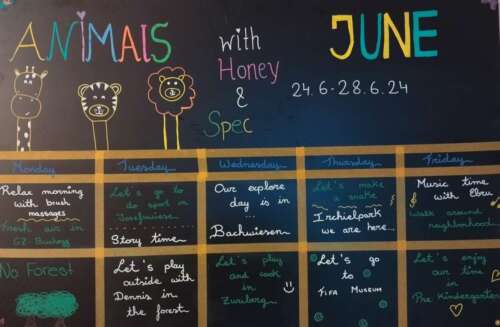 ANIMALS
with
Honey
&
Spec
JUNE
24.6-28.6.24
Monday
Tuesday
Wednesday
Thursday
Friday
Relax morning
with brush
massages
Fresh air in
GZ-Buchegg
Let's go to
do sport in
Josefwiese
Story time
Our explore
day is in
...
Bachwiesen
Let's make
a snake
Irchelpark
we are here...
Music time
with Ebru
Walk around
neighborhood...
No Forest
Let's play
outside with
Dennis in
the forest
Let's play
and cook
in
Zurlberg
Let's go
to
FIFA MUSEUM
Let's enjoy
our time
in
Pre Kindergarten